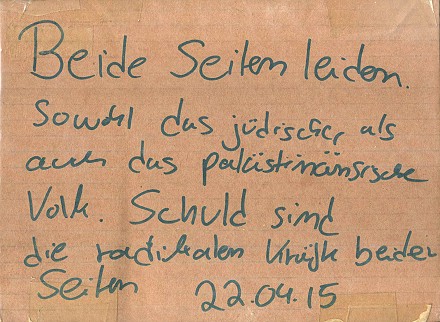 Beide Seiten leiden.
Sowohl das jüdische, als
auch das palästinänsische
Volk. Schuld sind
die radikalen Kräfte beider
Seiten 22.04.15